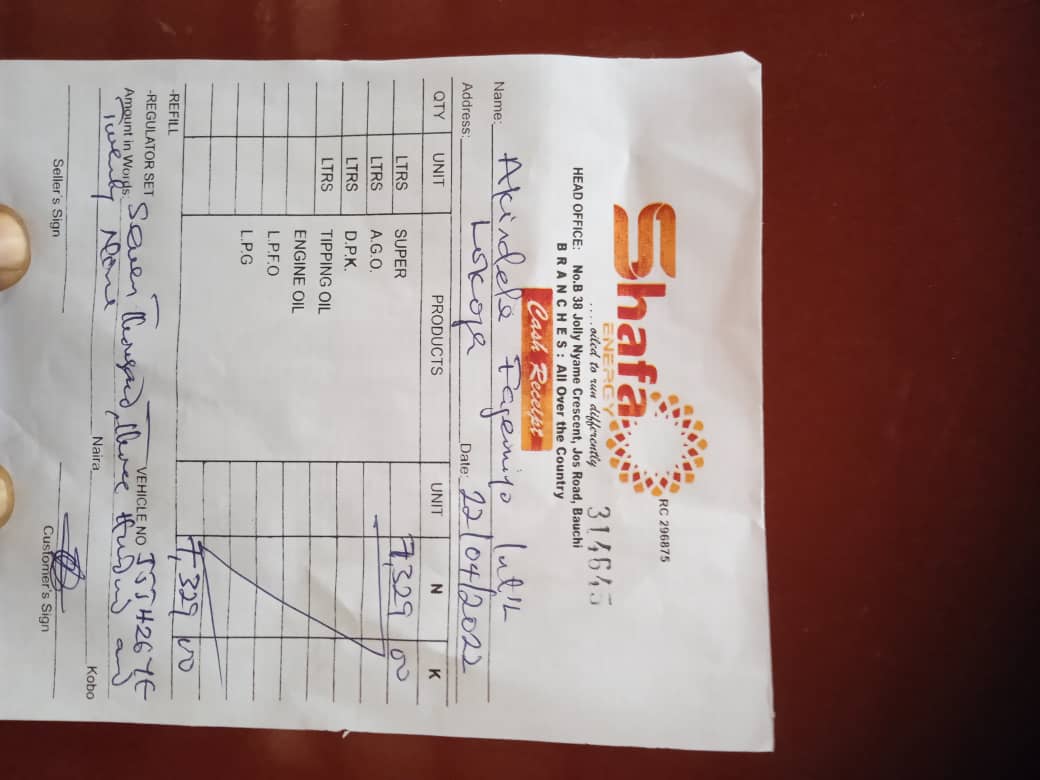 Shafa
ENERGY
RC 296875
....oiled to run differently
314645
HEAD OFFICE: No.B 38 Jolly Nyame Crescent, Jos Road, Bauchi
BRANCHES: All Over the Country
Cash Receipt
Name: Akindele Int'l
Address: Lokoja Date: 22/04/2022
QTY UNIT PRODUCTS UNIT N K
LTRS SUPER 7,329 00
LTRS A.G.O.
LTRS D.P.K.
LTRS TIPPING OIL
ENGINE OIL
L.P.F.O
L.P.G
7,329 00
-REFILL
-REGULATOR SET VEHICLE NO JJJ426YE
Amount in Words: Seven Thousand, three Hundred and
Twenty Nine Naira Kobo
Seller's Sign Customer's Sign